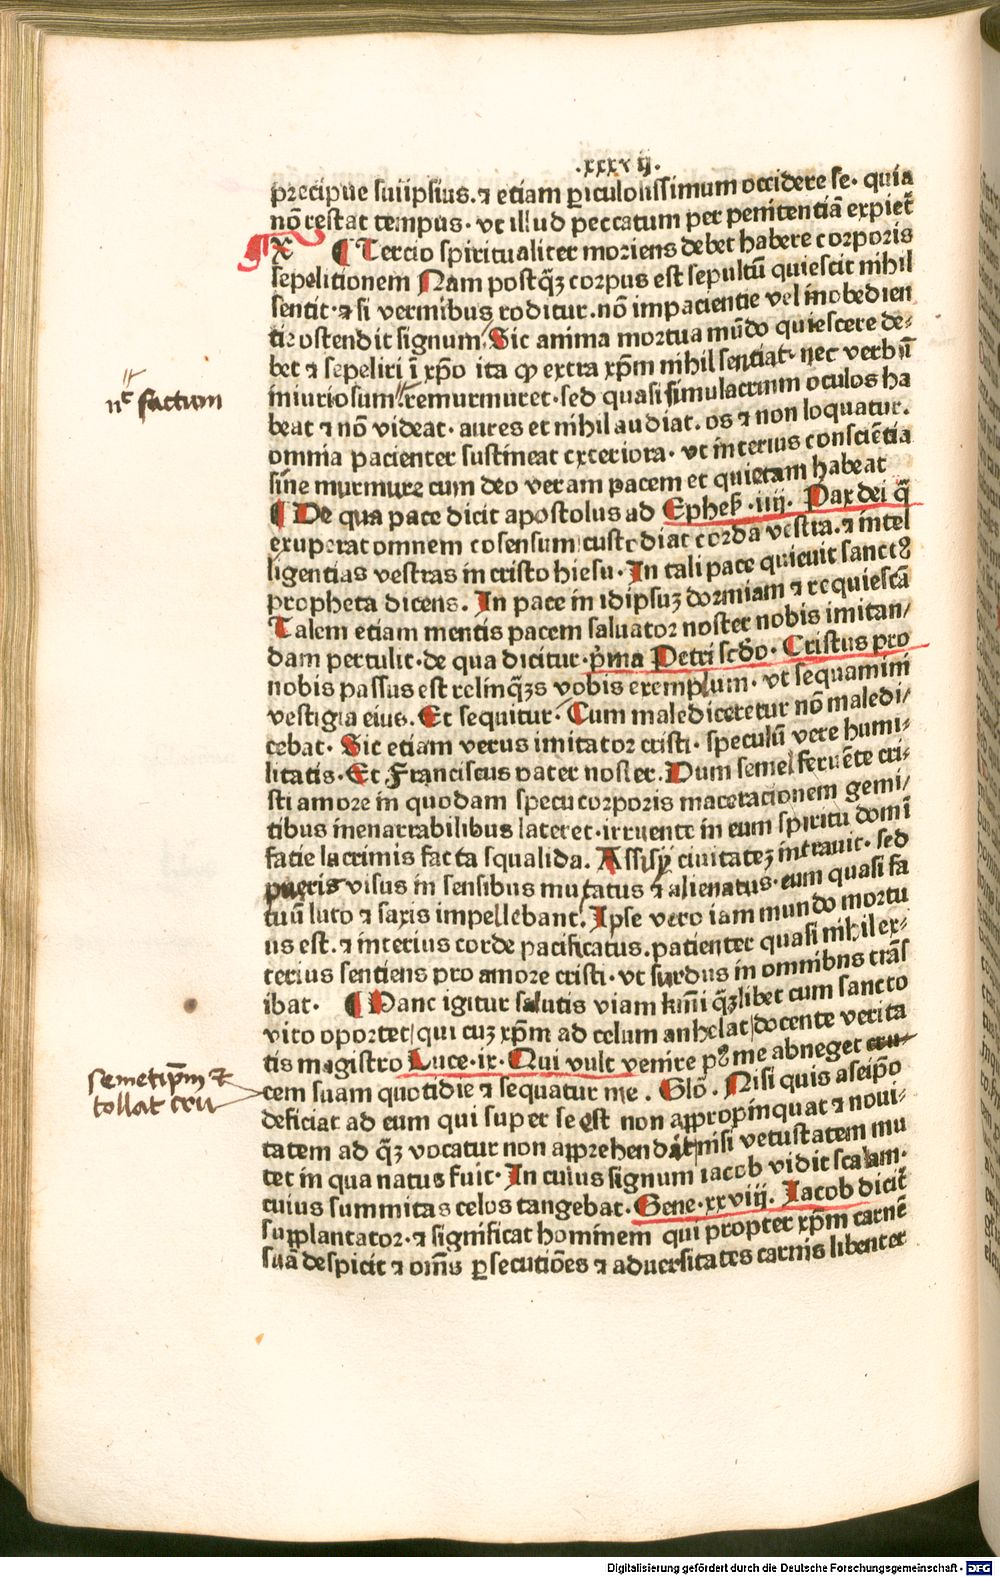 .xxxvij.
precipue suiipsius. ⁊ etiam ꝑiculosissimum occidere se. quia
nō restat tempus. vt illud peccatum per penitentiā expiet̄
x ¶ Tercio spiritualiter moriens debet habere corporis
sepelitionem Nam postq̄ꝫ corpus est sepultū quiescit nihil
sentit. ⁊ si vermibus roditur. nō impacientie vel inobedien
tie ostendit signum. Sic anima mortua mūdo quiescere de⸗
bet ⁊ sepeliri ī xp̄o ita ꝙ extra xp̄m nihil sentiat. nec verbū
iniuriosum remurmuret. sed quasi simulacrum oculos ha
nec factum
beat ⁊ nō videat. aures et nihil audiat. os ⁊ non loquatur.
omnia pacienter sustineat exteriora. vt interius consciētia
sine murmure cum deo veram pacem et quietam habeat
¶ De qua pace dicit apostolus ad Ephes̄ .iiij. Pax dei q̄
exuperat omnem cosensum custodiat corda vestra. ⁊ intel
ligentias vestras in cristo hiesu. In tali pace quieuit sanctꝰ
propheta dicens. In pace in idipsuꝫ dormiam ⁊ requiescā
Talem etiam mentis pacem saluator noster nobis imitan/
dam pertulit. de qua dicitur. p̄ma Petri scd̄o. Cristus pro
nobis passus est relinq̄ꝫs vobis exemplum. vt sequamini
vestigia eius. Et sequitur. Cum malediceretur nō maledi/
cebat. Sic etiam verus imitator cristi. speculū vere humi⸗
litatis. Et Franciscus pater noster. Dum semel feruēte cri⸗
sti amore in quodam specu corporis maceracionem gemi/
tibus inenarrabilibus lateret. irruente in eum spiritu domī
facie lacrimis facta squalida. Assisij ciuitateꝫ intrauit. sed
pueris visus in sensibus mutatus ⁊ alienatus. eum quasi fa
tuū luto ⁊ saxis impellebant. Ipse vero iam mundo mortu
us est. ⁊ interius corde pacificatus. patienter quasi nihil ex⸗
terius sentiens pro amore cristi. vt surdus in omnibus trās
ibat. ¶ Hanc igitur salutis viam inniti q̄ꝫlibet cum sancto
vito oportet qui cuꝫ xp̄m ad celum anhelat docente verita
tis magistro Luce .ix. Qui vult venire pꝰ me abneget cru⸗
semetip̄m ⁊
tollat cru
cem suam quotidie ⁊ sequatur me. Glō. Nisi quis a seip̄o
deficiat ad eum qui super se est non appropinquat ⁊ noui⸗
tatem ad q̄ꝫ vocatur non apprehendat nisi vetustatem mu
tet in qua natus fuit. In cuius signum iacob vidit scalam.
cuius summitas celos tangebat. Gene .xxviij. Iacob dicit̄
supplantator. ⁊ significat hominem qui propter xp̄m carnē
suā despicit ⁊ om̄s ꝑsecutiōes ⁊ aduersitates carnis libenter
Digitalisierung gefördert durch die Deutsche Forschungsgemeinschaft - DFG